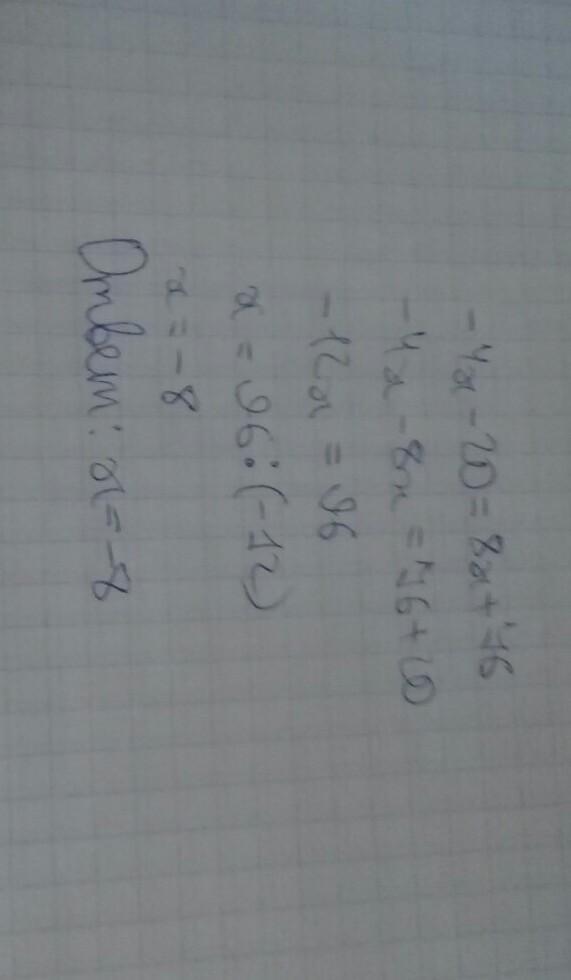 -4x-20=8x+76
-4x-8x=76+20
-12x=96
x=96:(-12)
x=-8
Ответ: x=-8